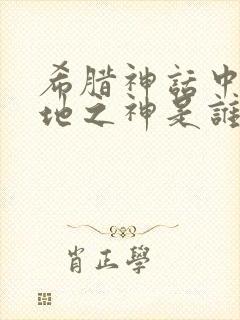 希腊神話中
地之神是誰
肖正學